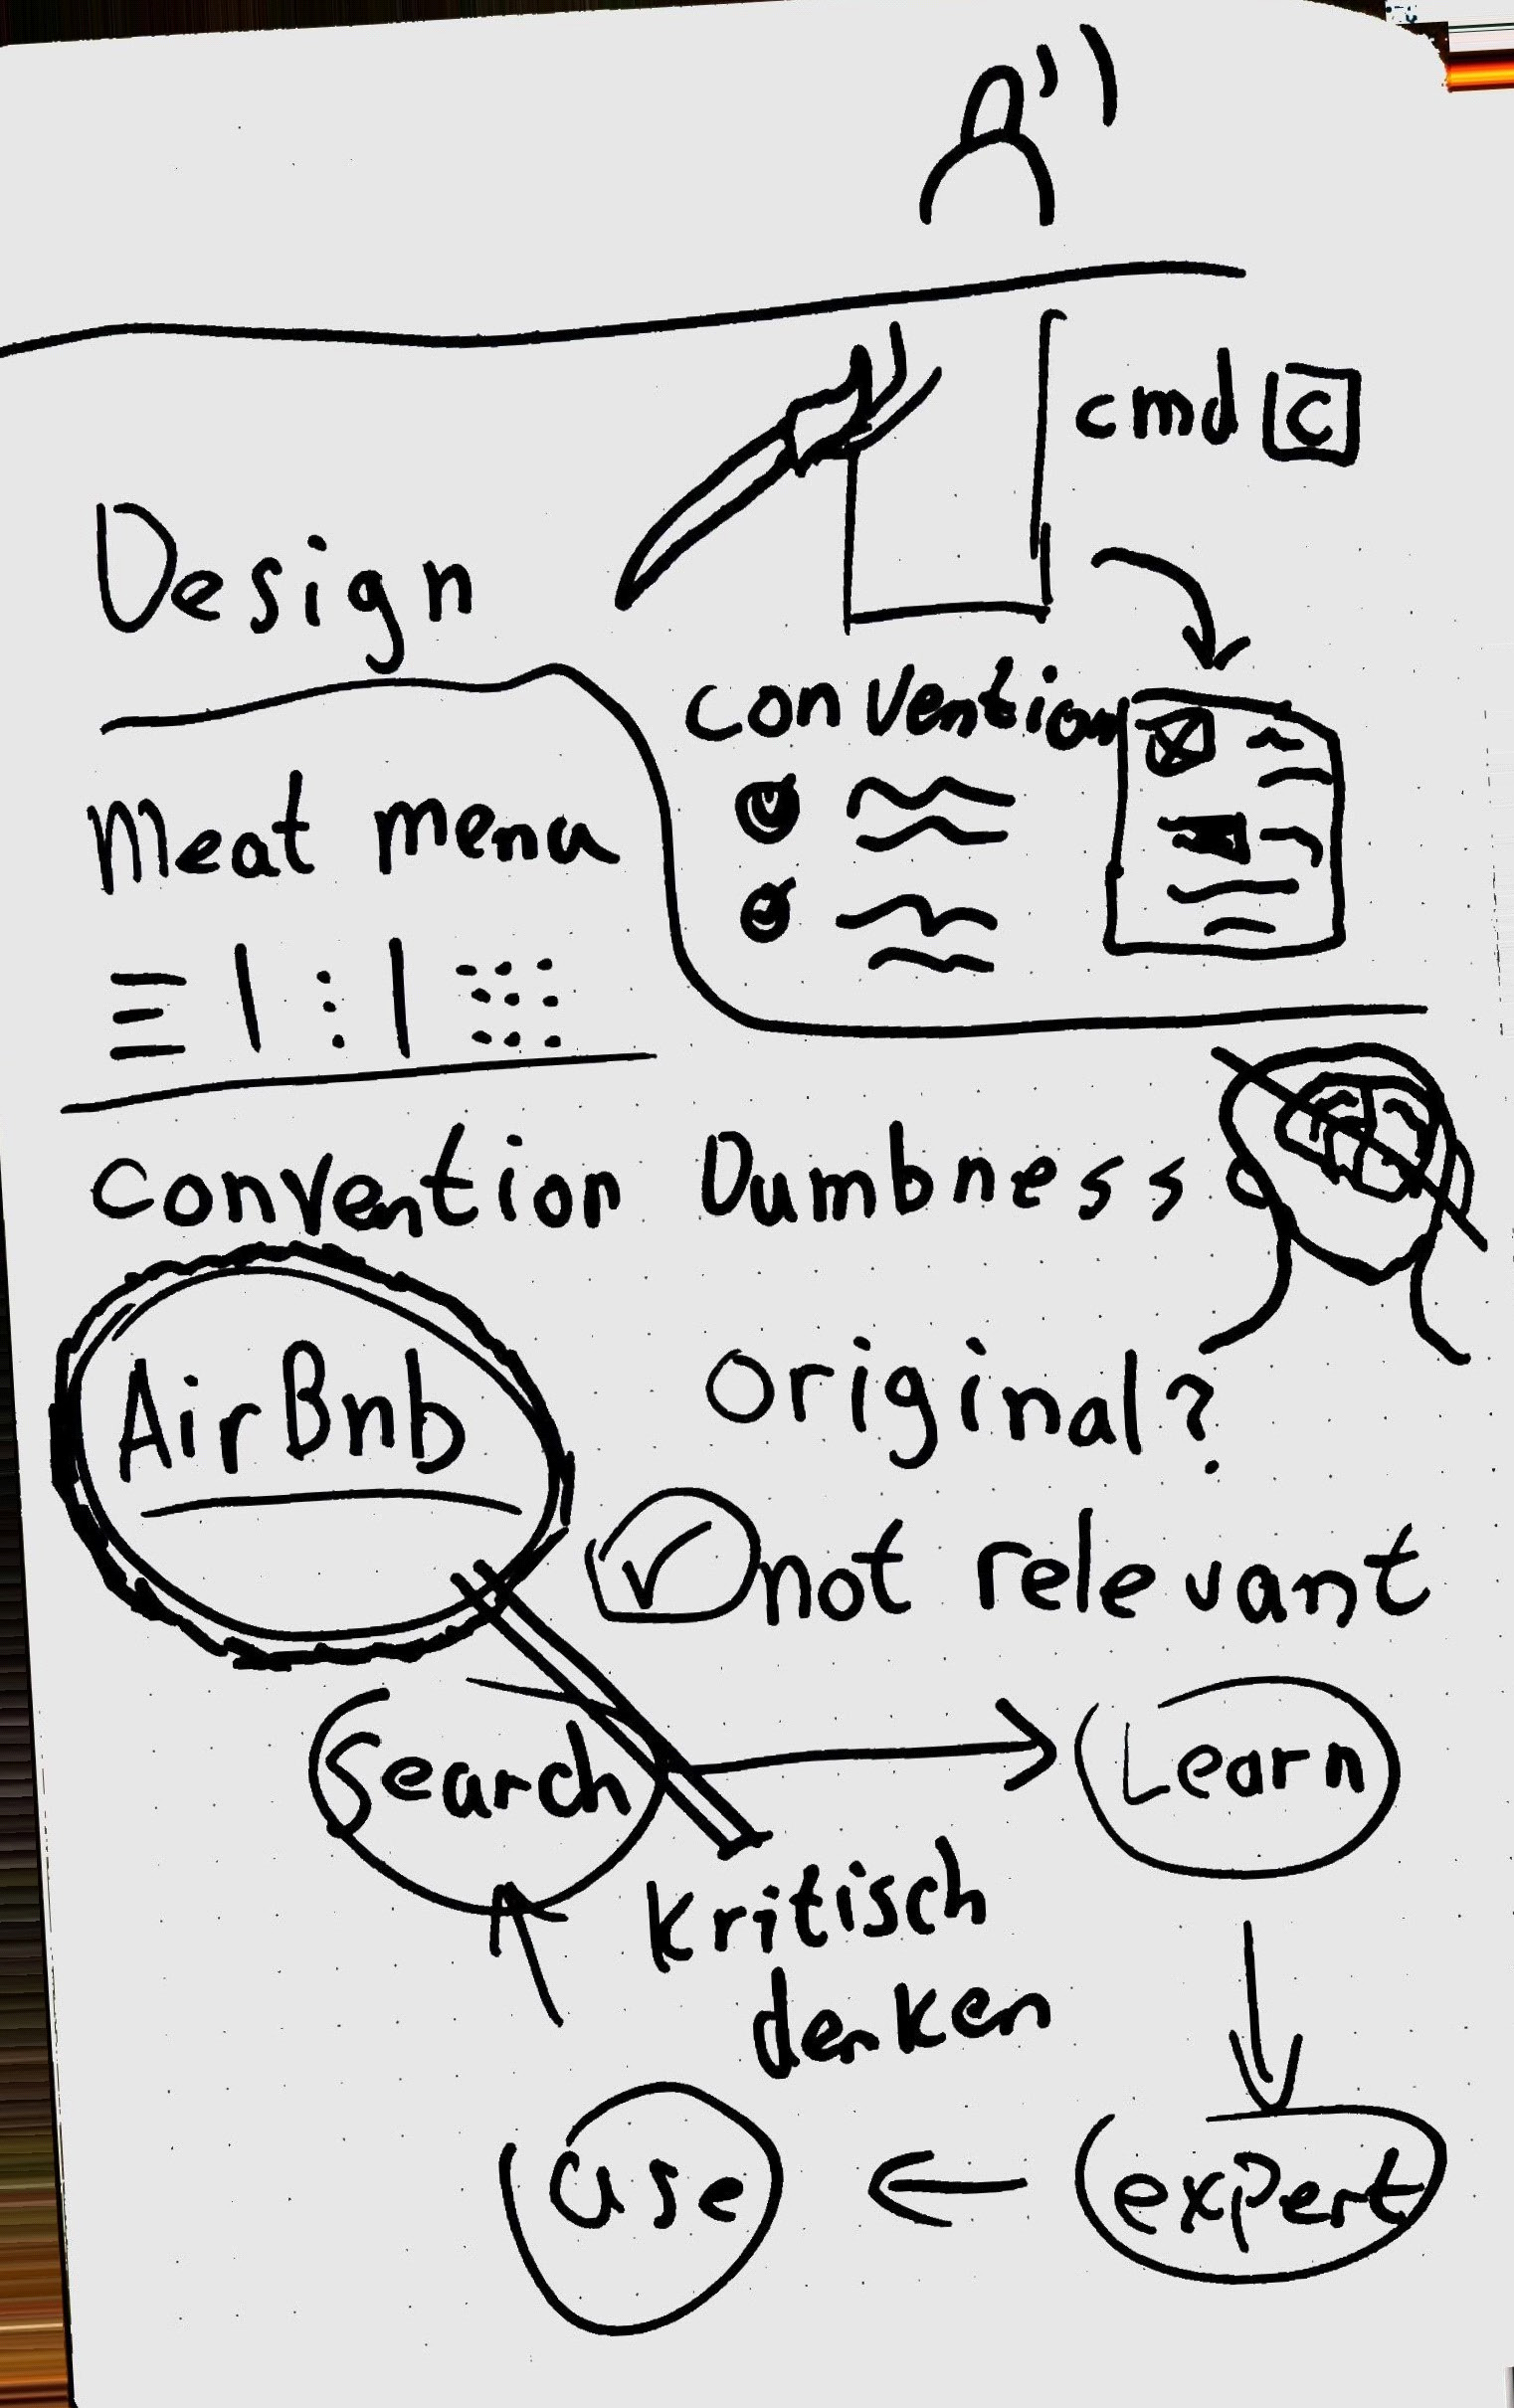 cmd C
Design
convention
Meat menu
Convention Dumbness
AirBnb
original?
not relevant
Search
Learn
kritisch
denken
use
expert